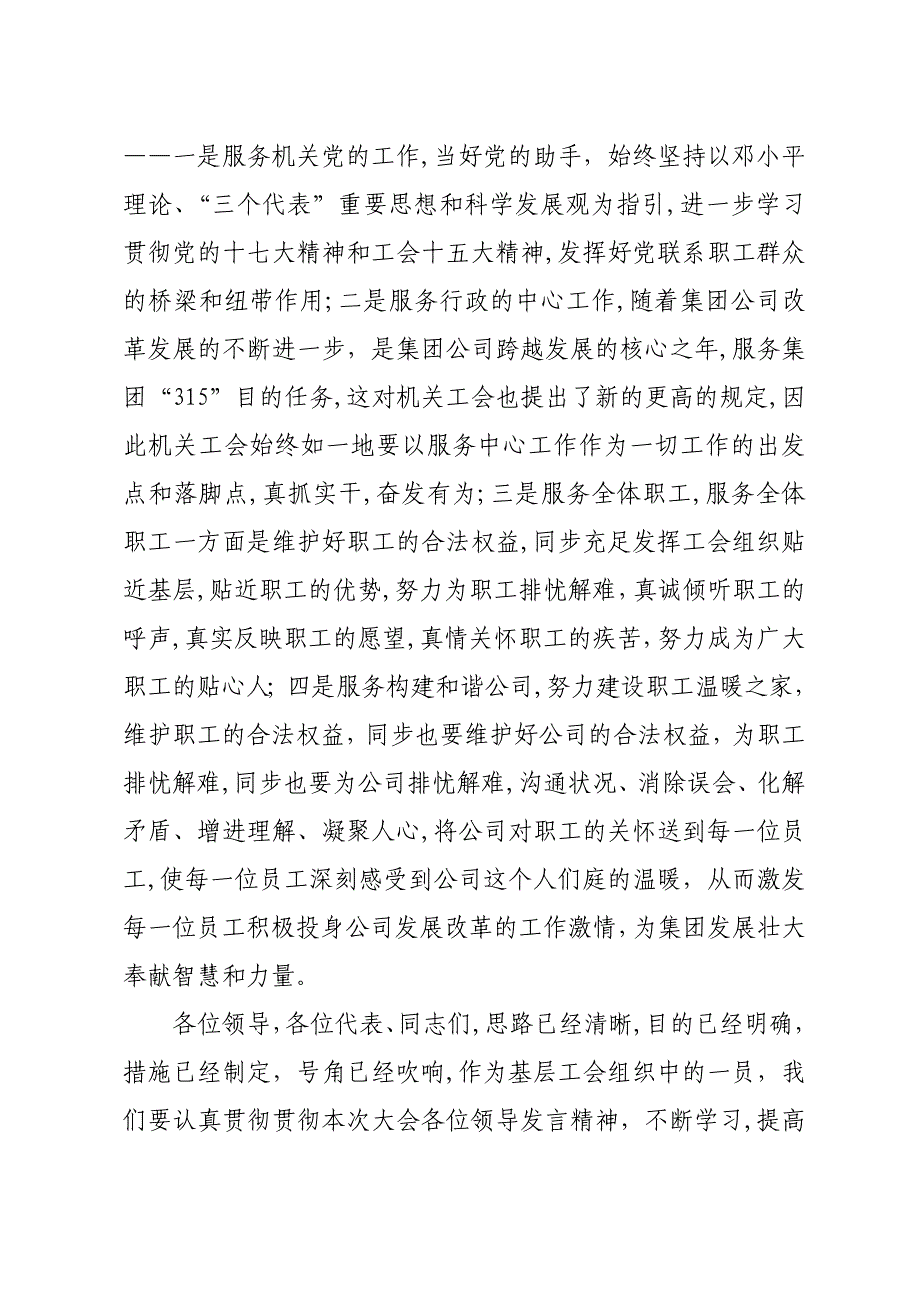 ——一是服务机关党的工作,当好党的助手，始终坚持以邓小平
理论、“三个代表”重要思想和科学发展观为指引,进一步学习
贯彻党的十七大精神和工会十五大精神,发挥好党联系职工群众
的桥梁和纽带作用;二是服务行政的中心工作,随着集团公司改
革发展的不断进一步，是集团公司跨越发展的核心之年,服务集
团“315”目的任务,这对机关工会也提出了新的更高的规定,因
此机关工会始终如一地要以服务中心工作作为一切工作的出发
点和落脚点,真抓实干,奋发有为;三是服务全体职工,服务全体
职工一方面是维护好职工的合法权益,同步充足发挥工会组织贴
近基层,贴近职工的优势,努力为职工排忧解难，真诚倾听职工的
呼声,真实反映职工的愿望,真情关怀职工的疾苦，努力成为广大
职工的贴心人;四是服务构建和谐公司,努力建设职工温暖之家，
维护职工的合法权益，同步也要维护好公司的合法权益，为职工
排忧解难,同步也要为公司排忧解难,沟通状况、消除误会、化解
矛盾、增进理解、凝聚人心,将公司对职工的关怀送到每一位员
工,使每一位员工深刻感受到公司这个人们庭的温暖，从而激发
每一位员工积极投身公司发展改革的工作激情，为集团发展壮大
奉献智慧和力量。
各位领导,各位代表、同志们,思路已经清晰,目的已经明确，
措施已经制定，号角已经吹响,作为基层工会组织中的一员，我
们要认真贯彻贯彻本次大会各位领导发言精神，不断学习,提高